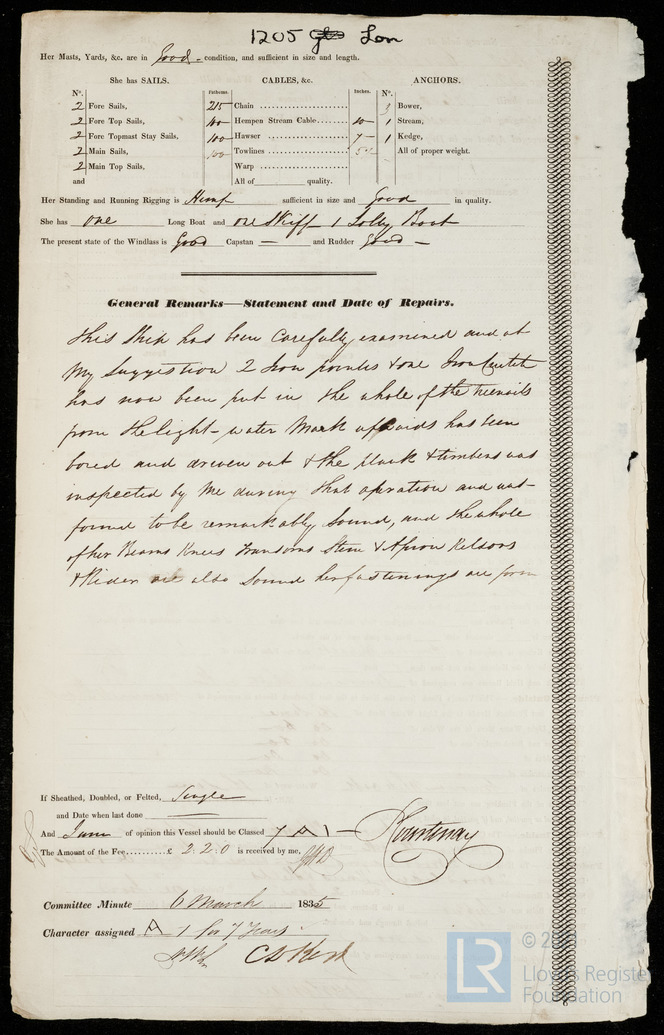 1205 Lon
Her Masts, Yards, &c. are in Good condition, and sufficient in size and length.
She has SAILS. CABLES, &c. ANCHORS.
N°. Fathoms. Inches. N°.
2 Fore Sails, 215 Chain 3 Bower,
2 Fore Top Sails, 100 Hempen Stream Cable 10 1 Stream,
2 Fore Topmast Stay Sails, 100 Hawser 7 1 Kedge,
2 Main Sails, 100 Towlines 5 All of proper weight.
2 Main Top Sails, Warp
and All of quality.
Her Standing and Running Rigging is Hemp sufficient in size and Good in quality.
She has one Long Boat and one Skiff 1 Jolly Boat
The present state of the Windlass is Good Capstan — and Rudder Good —
General Remarks—Statement and Date of Repairs.
This Ship has been Carefully examined and at
My Suggestion 2 Iron pointers & one Iron Crutch
has now been put in the whole of the treenails
from the light-water Mark upwards has been
bored and driven out & the plank & timbers was
inspected by me during that operation and was
found to be remarkably Sound, and the whole
of her Beams Knees Transoms Stem & Apron Kelsons
& Rider are also Sound her fastenings are
If Sheathed, Doubled, or Felted, Single
and Date when last done —
And I am of opinion this Vessel should be Classed 7 A 1 — Courtenay
The Amount of the Fee £ 2 2 0 is received by me,
Committee Minute 6 March 1835
Character assigned A 1 for 7 Years
© 20
Lloyd's Register
Foundation
LR